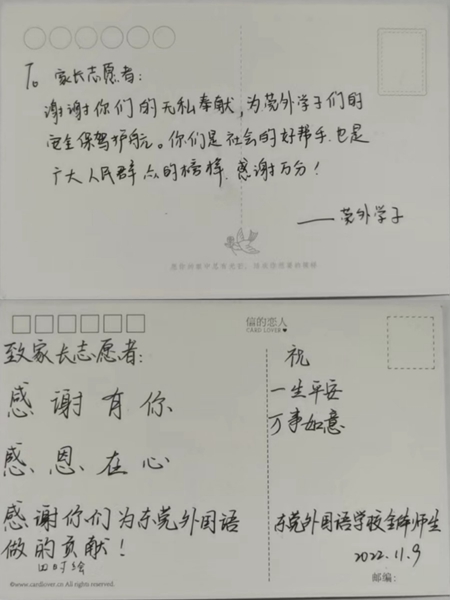 To 家长志愿者:
谢谢你们的无私奉献,为莞外学子们的
安全保驾护航。你们是社会的好帮手,也是
广大人民群众的榜样,感谢万分!
——莞外学子
信的恋人
CARD LOVER
致家长志愿者:
感谢有你
感恩在心
感谢你们为东莞外国语
做的贡献!
祝
一生平安
万事如意
东莞外国语学校全体师生
2022.11.9
©www.cardlover.cn All rights reserved.
邮编: